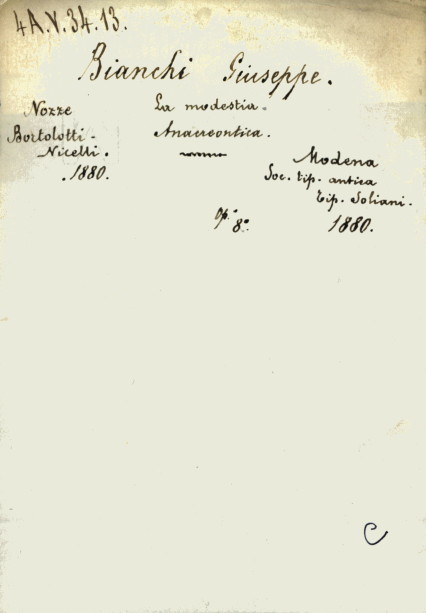 4A.V.34.13.
Bianchi Giuseppe.
Nozze
Bortolotti-
Nicelli.
.1880.
La modestia.
Anacreontica.
Modena
Soc. tip. antica
Tip. Soliani.
1880.
op.° 8.°
C